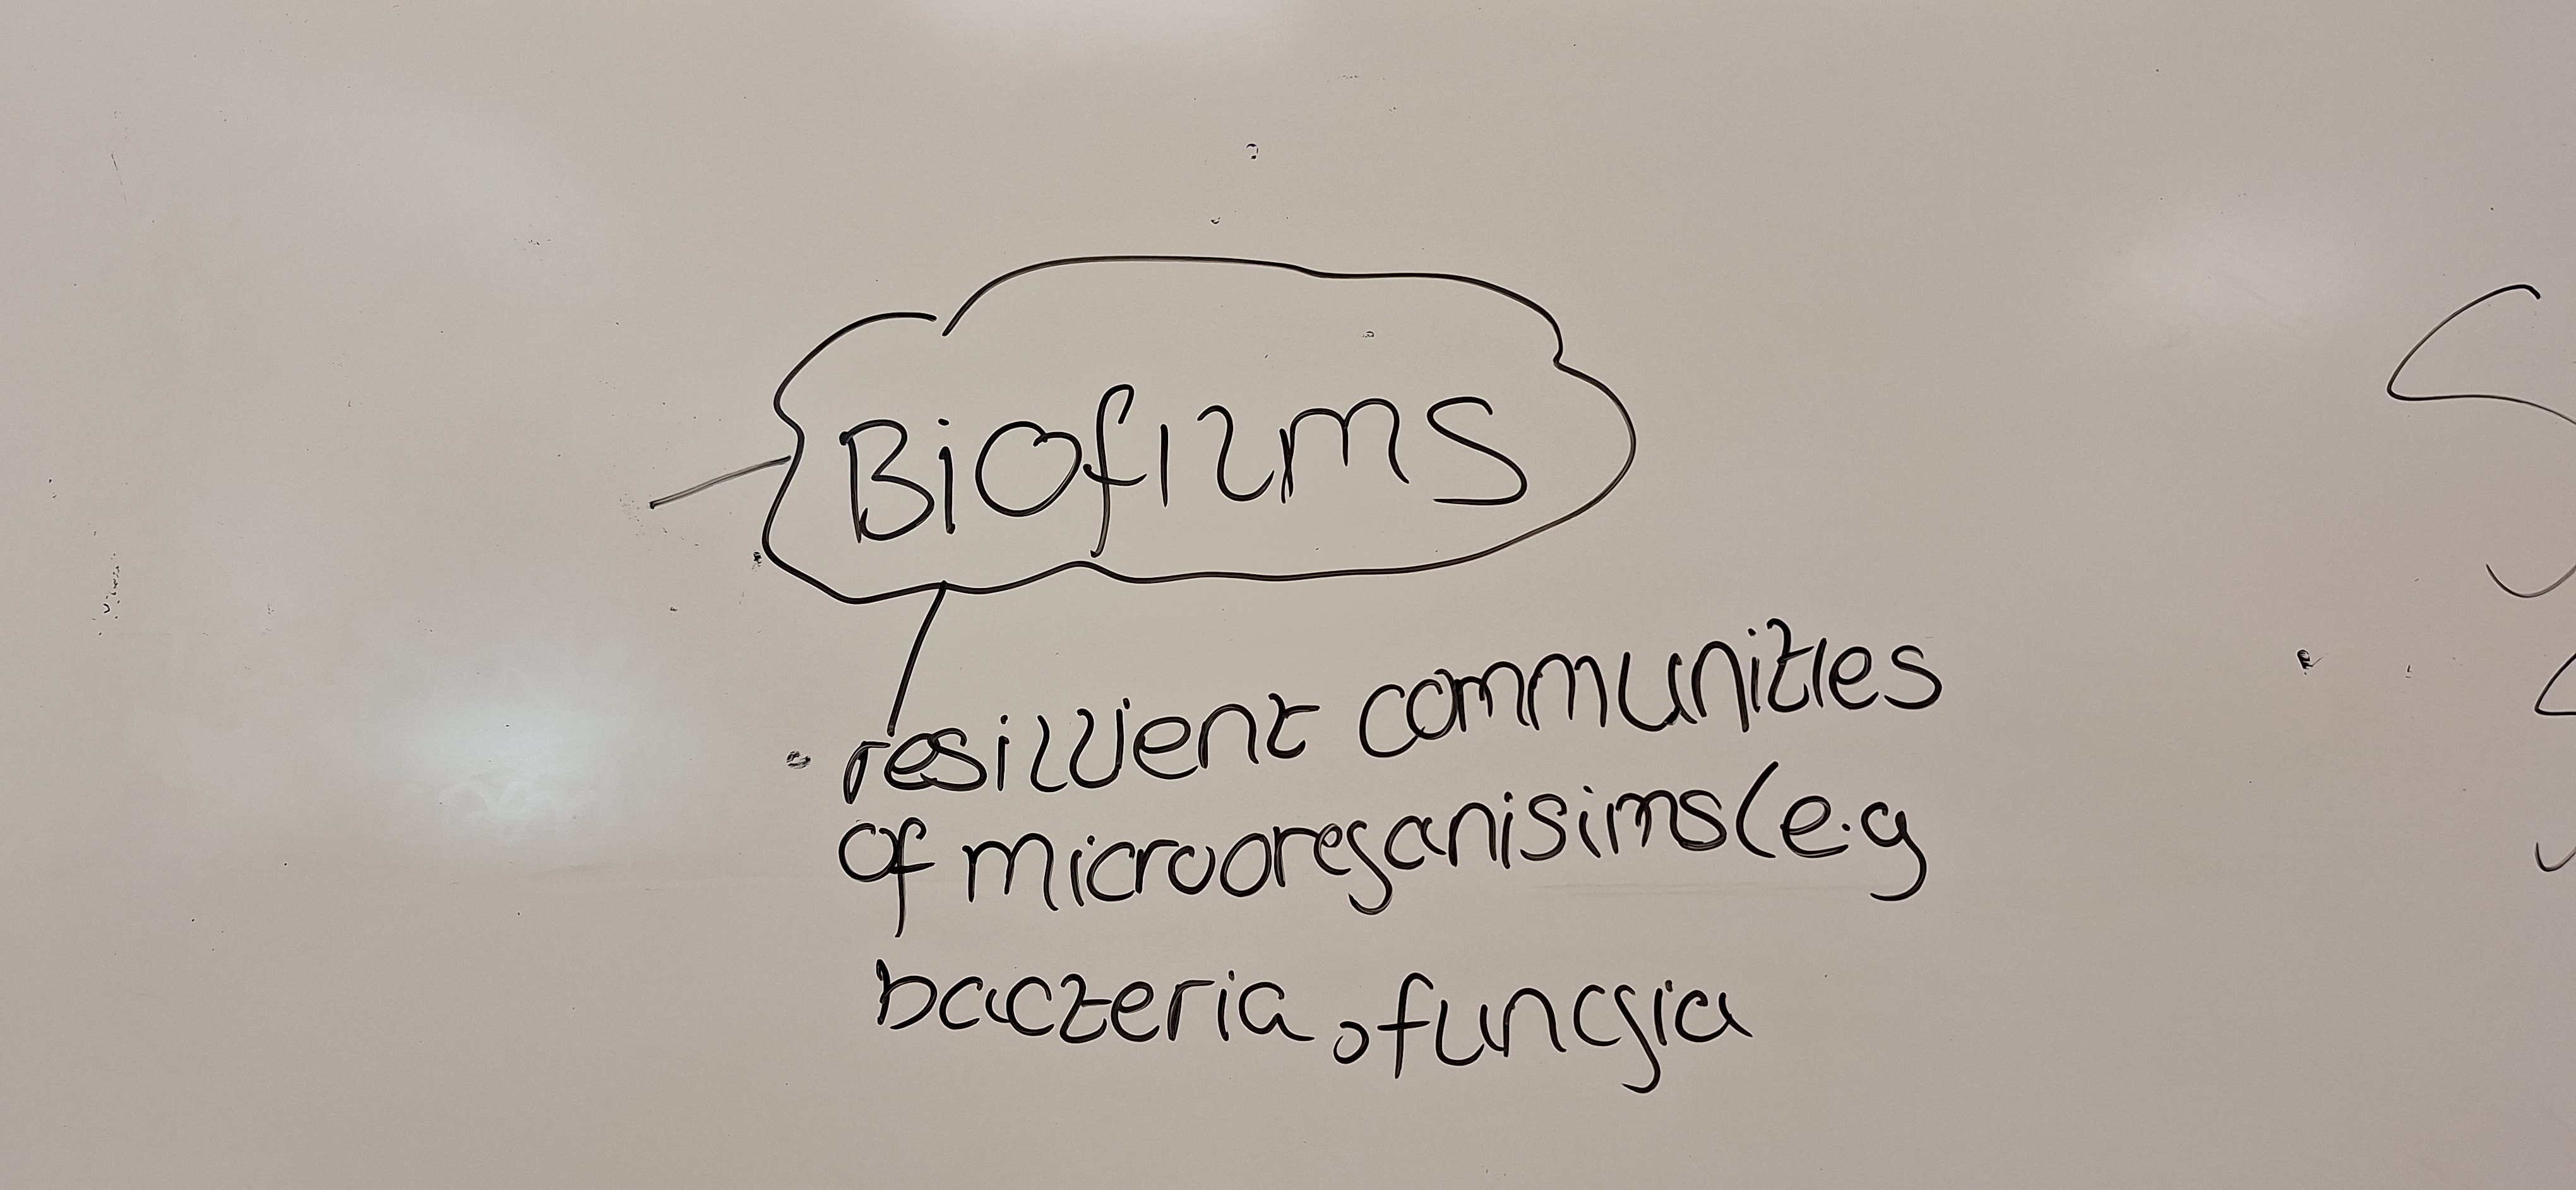 Biofilms
resillient communities
of microoreganisims(e.g
bacteria, fungia